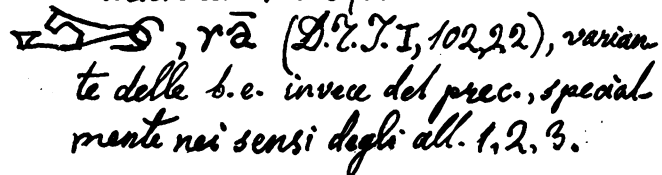 , rā (D.Z.J.I, 102,22), varian-
te delle b.e. invece del prec., special-
mente nei sensi degli all. 1, 2, 3.